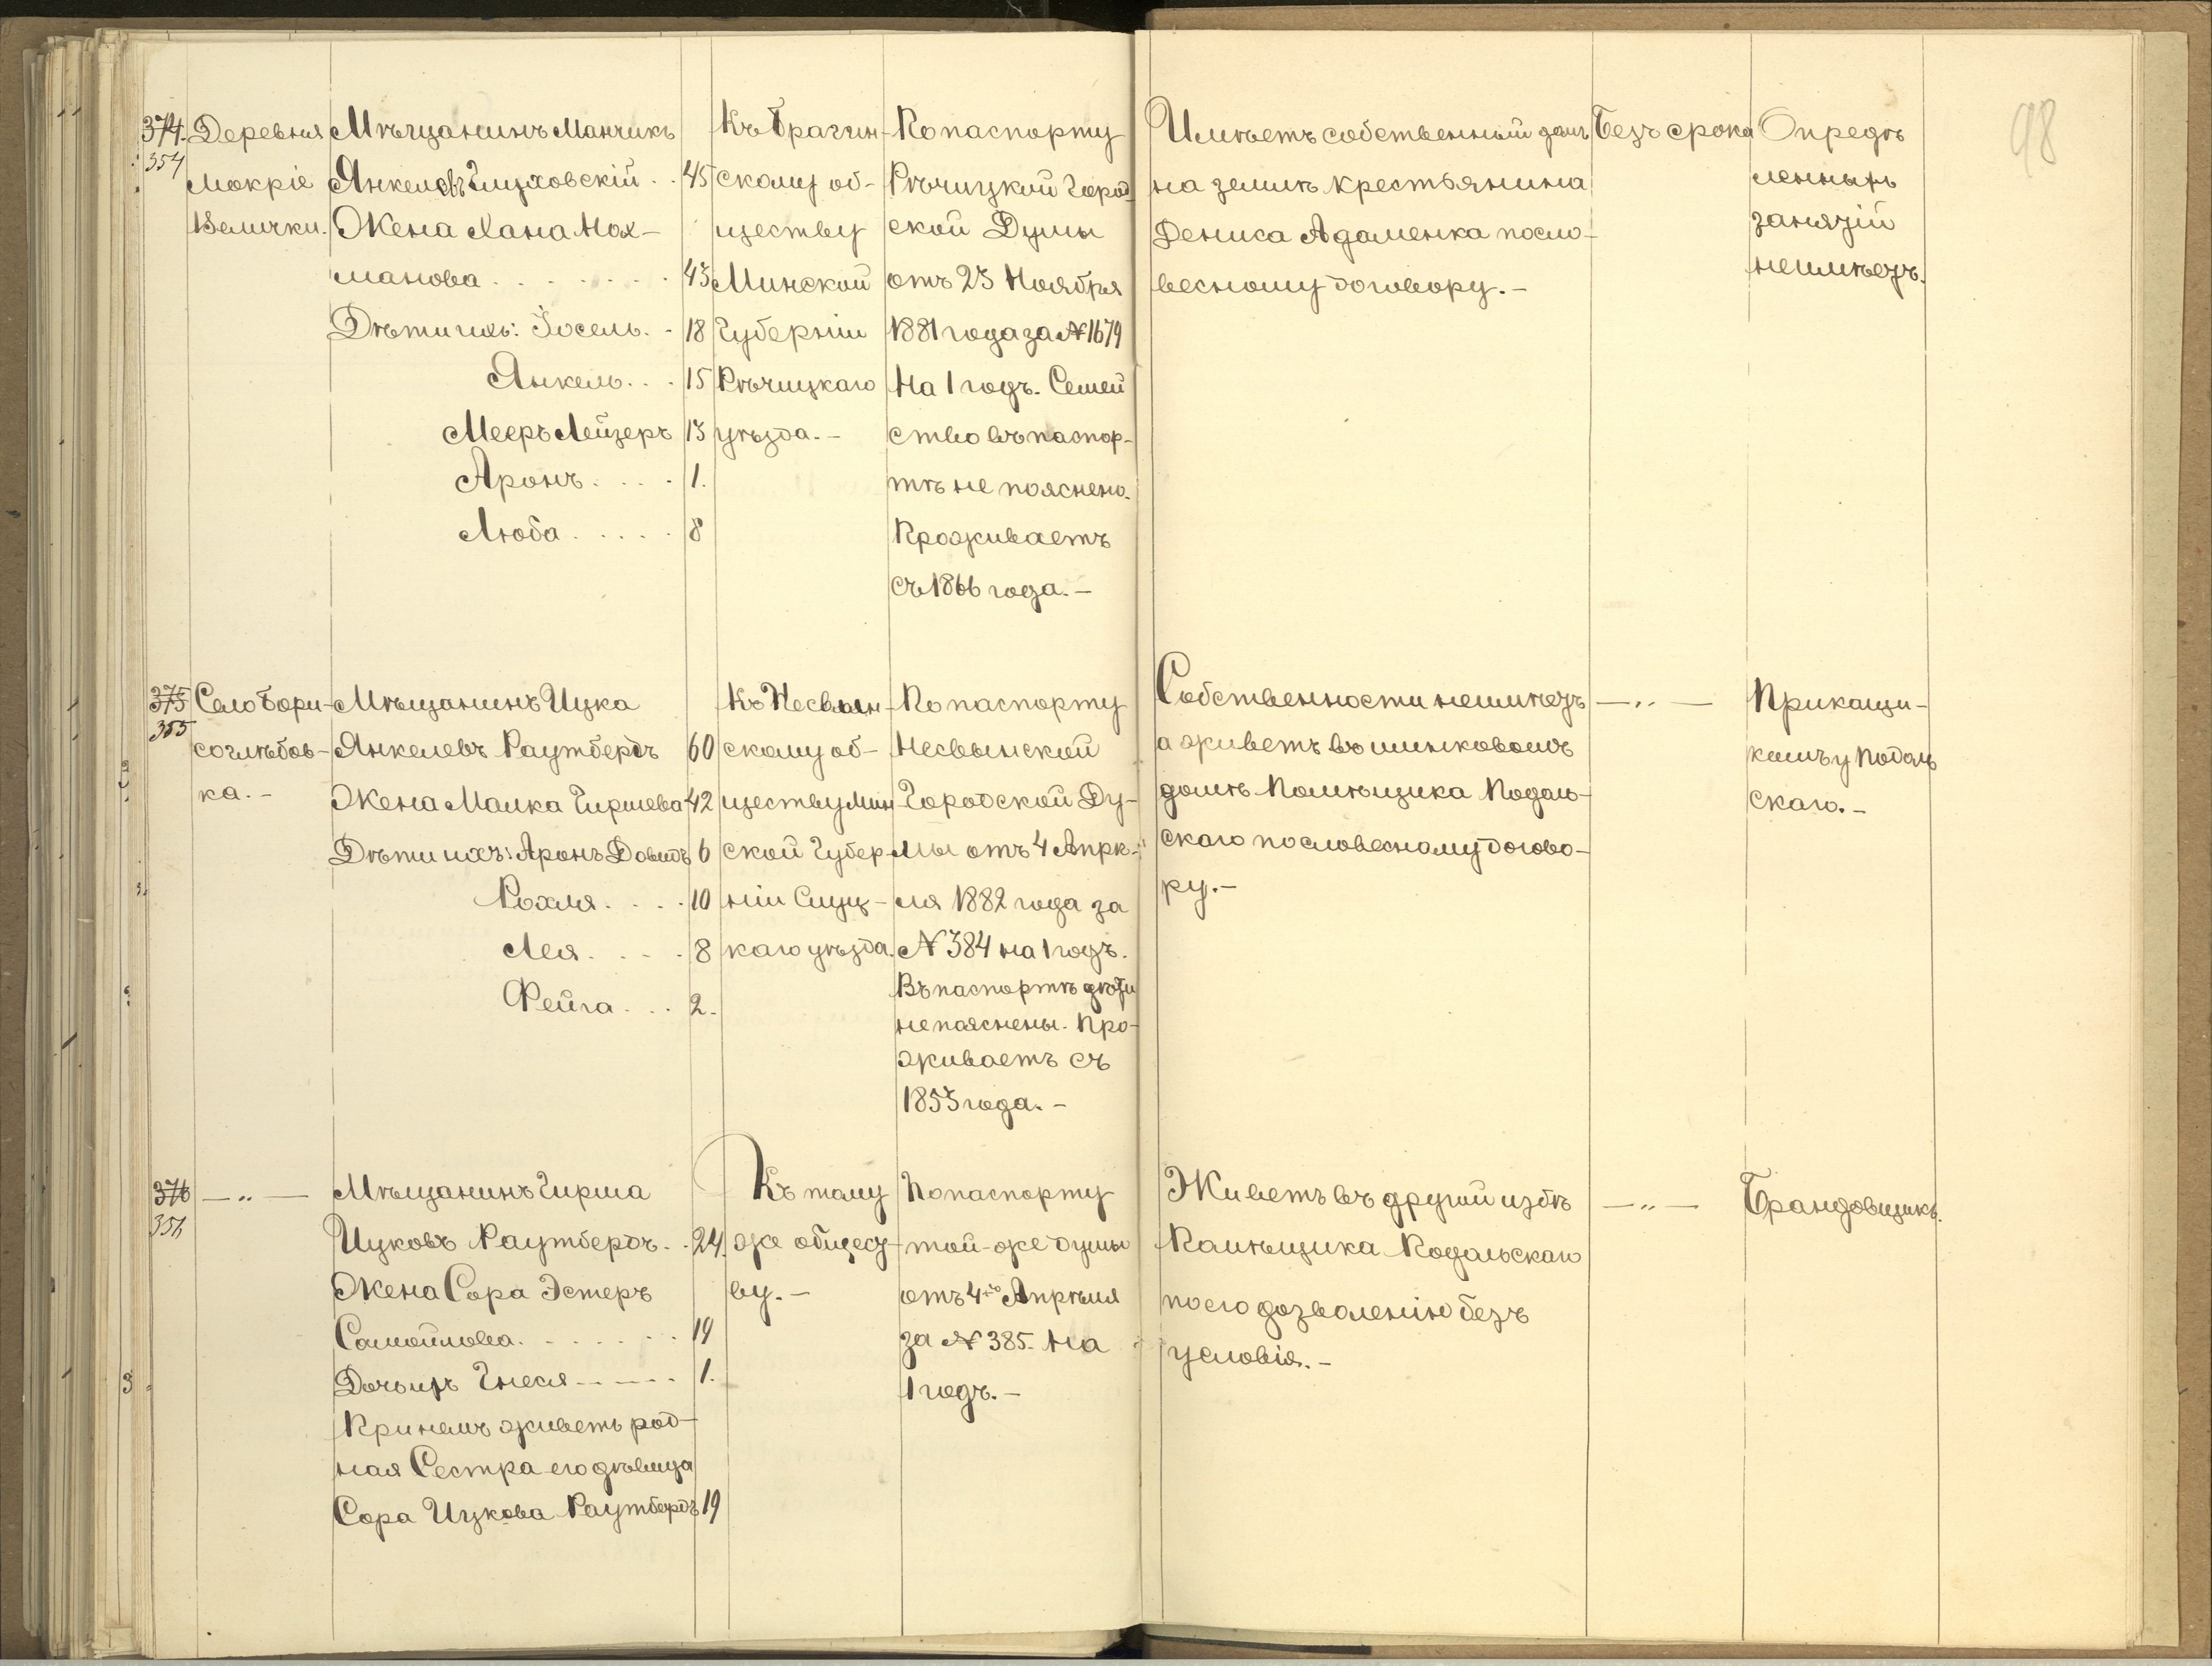 98
374.
354
Деревня
Мокріе
Велички.
Мѣщанинъ Манчикъ
Янкелевъ Глуховскій . . 45
Жена Хана Нох-
манова . . . . . . . 43
Дѣти ихъ: Іосель . - 18
Янкель . . . 15
Мееръ Лейзеръ 13
Аронъ . . . . 1.
Люба . . . . . 8
Къ Брагин-
скому об-
ществу
Минской
Губерніи
Рѣчицкаго
уѣзда. -
По паспорту
Рѣчицкой Город
ской Думы
отъ 23 Ноября
1881 года за № 1679
На 1 годъ. Семей
ство въ паспор-
тѣ не пояснено.
Проживаетъ
съ 1866 года. -
Имѣетъ собственный домъ
на землѣ крестьянина
Дениса Адаменка посло-
весному договору. -
Безъ срока
Опредѣ
ленныхъ
занятій
неимѣетъ.
375
355
Село Бори-
соглѣбов-
ка. -
Мѣщанинъ Ицка
Янкелевъ Раутбердъ 60
Жена Малка Гиршева 42
Дѣти ихъ: Аронъ Довидъ 6
Рохля . . . . 10
Лея . . - . 8
Фейга . . . 2.
Къ Несвын-
скому об-
ществу Мин
ской Губер
ніи Слуц-
каго уѣзда.
По паспорту
Несвынской
Городской Ду-
мы отъ 4 Апрѣ-
ля 1882 года за
№ 384 на 1 годъ.
Въ паспортѣ дѣти
не пояснены. Про-
живаетъ съ
1853 года. -
Собственности неимѣетъ
а живетъ въ шинковомъ
домѣ Помѣщика Подоль-
скаго по словесному догово-
ру. -
— „ —
Прикащи-
комъ у Подоль
скаго. -
376
356
— „ —
Мѣщанинъ Гирша
Ицковъ Раутбердъ . . 24
Жена Сора Эстеръ
Самойлова . - . . . . . 19
Дочь ихъ Гнеся - - — - . 1.
При немъ живетъ род-
ная Сестра его дѣвица
Сора Ицкова Раутбердъ 19
Къ тому
же общест
ву. -
По паспорту
той-же думы
отъ 4го Апрѣля
за № 385. На
1 годъ. -
Живетъ въ другой избѣ
Помѣщика Подольскаго
по его дозволенію безъ
условія. -
— „ —
Брандовщикъ.